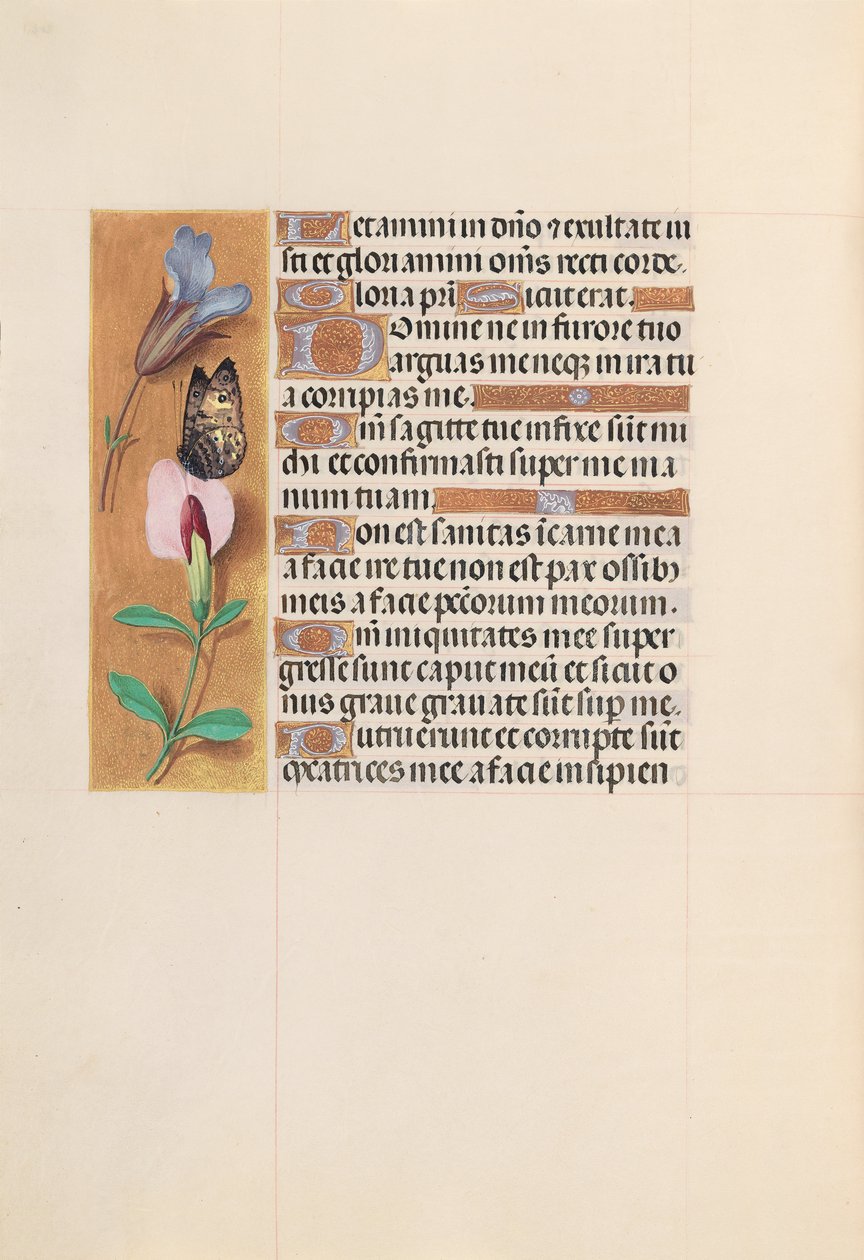 Letamini in dn̄o ⁊ exultate iu
sti et gloriamini om̄s recti corde.
Gloria pr̄i Sicut erat.
Domine ne in furore tuo
arguas me neqꝫ in ira tu
a corripias me.
Qm̄ sagitte tue infixe sūt mi
chi et confirmasti super me ma
num tuam.
Non est sanitas ī carne mea
a facie ire tue non est pax ossibꝫ
meis a facie pc̄corum meorum.
Qm̄ iniquitates mee super
gresse sunt caput meū et sicut o
nus graue grauate sūt suꝑ me.
Putruerunt et corrupte sūt
cicatrices mee a facie insipien